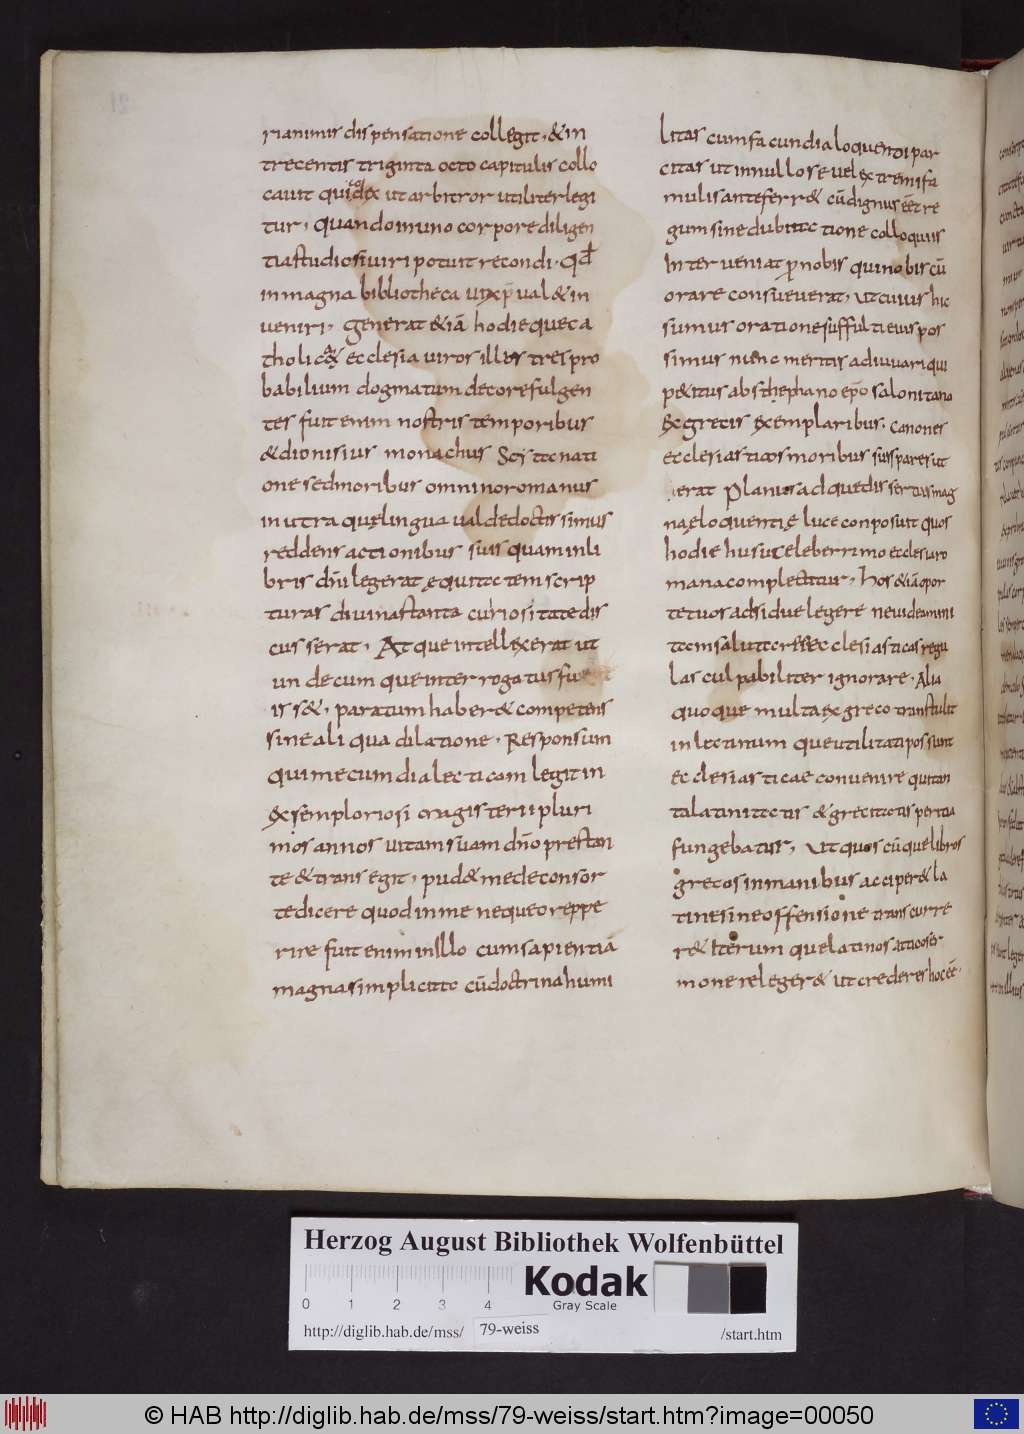 rianinis dispensatione collegit, & in
trecentis triginta octo capitulis collo
cavit qui codex ut arbitror utiliter legi
tur, quando in uno corpore diligen
tia studiosi viri potuit recondi. Qđ
in magna bibliotheca vix p̄val& in
veniri, Generat & iā hodieque ca
tholica & ecclesia viros illos tres pro
babilium dogmatum decore fulgen
tes fuit enim nostris temporibus
& dionisius monachus Scytta nati
one sed moribus omnino romanus
in utraquę lingua valde doctissimus
reddens actionibus suis quam in li
bris dn̄i legerat, ęquitatem scrip
turas divinas tanta curiositate dis
cusserat, Atque intellexerat ut
undecumque interrogatus fu
iss&, paratum haber& competens
sine aliqua dilatione, Responsum
qui mecum dialecticam legit in
exsemplo riosi magisterii pluri
mos annos vitam suam dn̄o prestan
te & transegit, pud& me de consor
te dicere quod in me nequeo reppe
rire fuit enim in illo cum sapientiā
magna simplicitta cū doctrina humi
litas cum facundia loquendi par
citas ut in nullo se vel extremi fa
mulis anteferr& cū dignus ēet re
gum sine dubitatione colloquiis
Interveniat p̄ nobis qui nobiscū
orare consueverat, ut cuius hic
sumus oratione suffulti eius pos
simus nunc meritis adiuvari qui
p&itus ab sthephano ep̄o salonitano
Ex grecis exemplaribus. Canones
ecclesiasticos moribus suis pares ut
erat Planus ad que disertus mag
naę loquentię luce conposuit quos
hodie husu celeberrimo ecclesia ro
mana complectitur, Hos & iā opor
tet vos adsidue legere ne videamini
tam salutares ecclesiasticas regu
las culpabiliter ignorare, Alia
quoque multa ex greco transtulit
in lectinum que utilitati possunt
ecclesiasticae convenire qui tan
ta latinitatis & grecitatis peritia
fungebatur, ut quoscūque libros
grecos in manibus acciper& la
tine sine offensione transcurre
r& Iterum que latinos attico ser
mone releger& ut crederes hoc ēe.
Herzog August Bibliothek Wolfenbüttel
0 1 2 3 4
Kodak
Gray Scale
http://diglib.hab.de/mss/ 79-weiss /start.htm
© HAB http://diglib.hab.de/mss/79-weiss/start.htm?image=00050